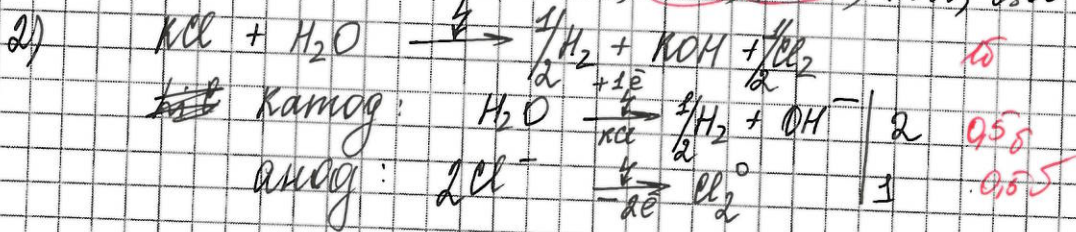 2) KCl + H₂O → 1/2H₂ + KOH + 1/2Cl₂ 1б
катод: H₂O +1ē → KCl 1/2H₂ + OH⁻ | 2 0,5б
анод: 2Cl⁻ → −2ē Cl₂⁰ | 1 0,5б